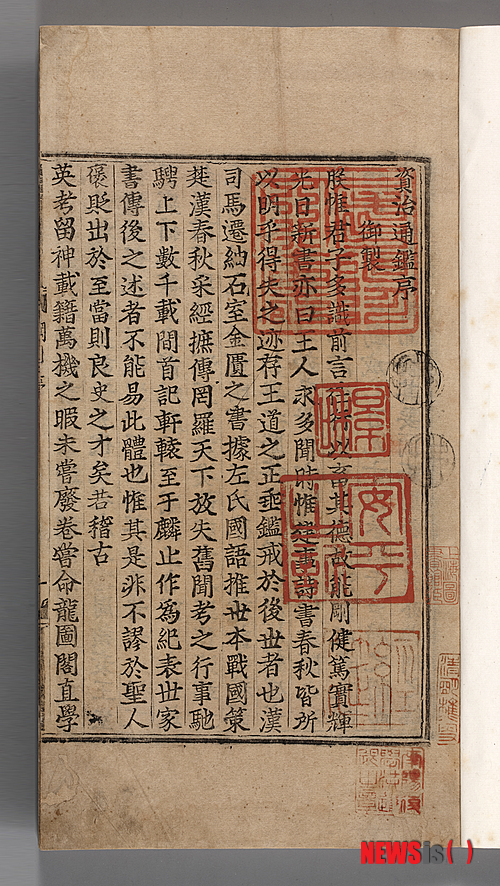 資治通鑑序
御製
朕惟君子多識前言往行以畜其德故能剛健篤實輝
光日新書亦曰王人求多聞時惟建事詩書春秋皆所
以明乎得失之迹存王道之正垂鑑戒於後世者也漢
司馬遷紬石室金匱之書據左氏國語推世本戰國策
楚漢春秋采經摭傳罔羅天下放失舊聞考之行事馳
騁上下數千載間首記軒轅至于麟止作爲紀表世家
書傳後之述者不能易此體也惟其是非不謬於聖人
褒貶出於至當則良史之才矣若稽古
英考留神載籍萬機之暇未嘗廢卷嘗命龍圖閣直學
NEWSis( )